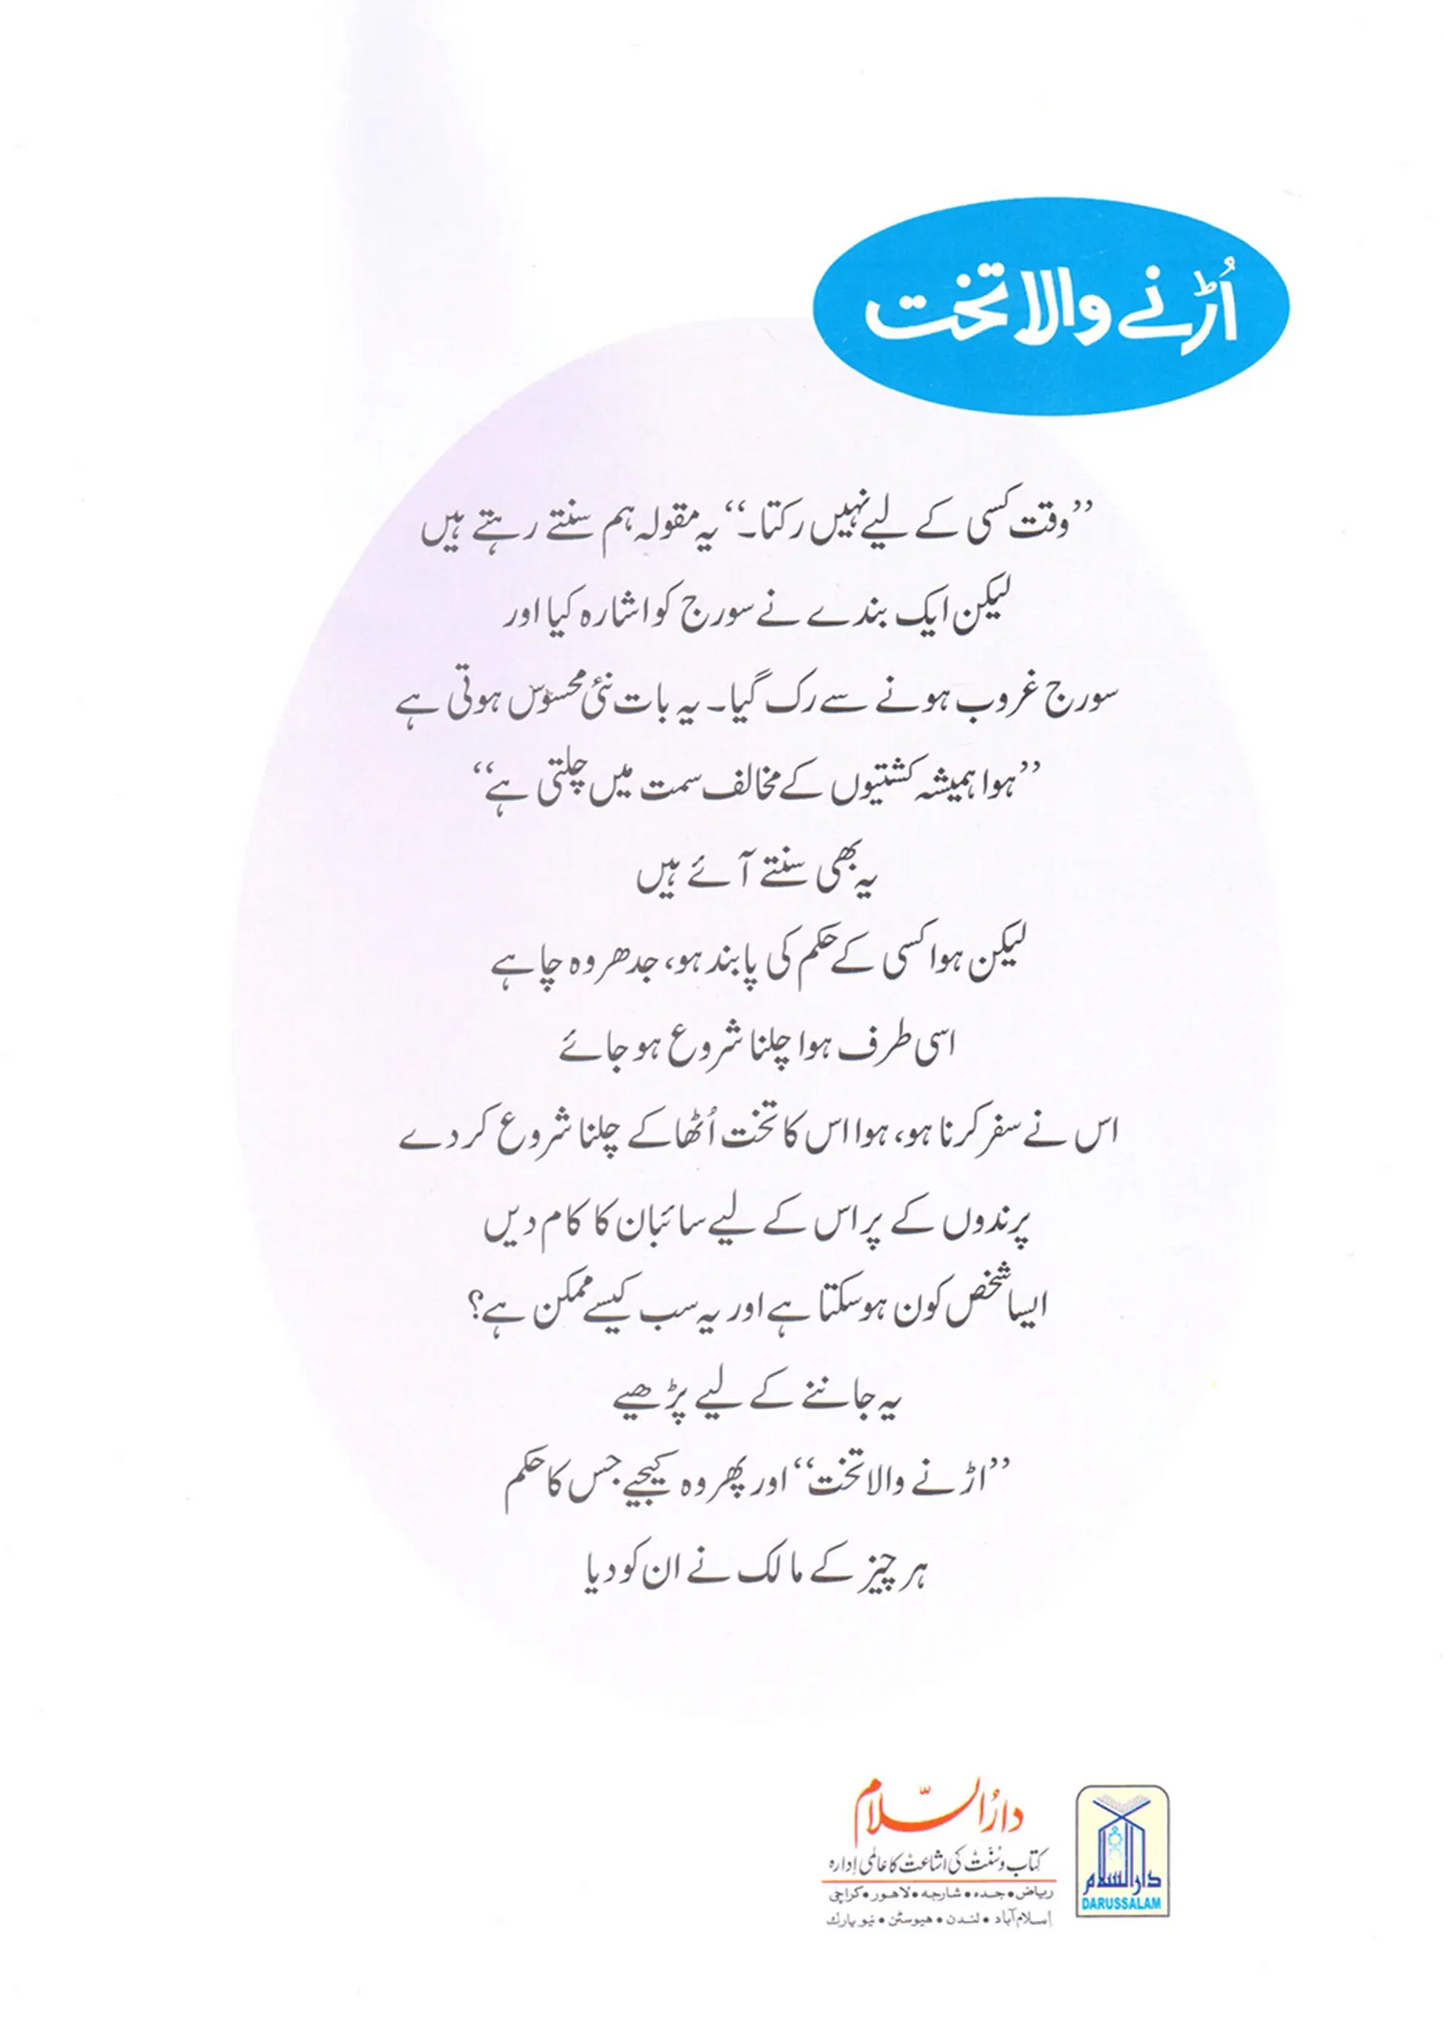 اُڑنے والا تخت
’’وقت کسی کے لیے نہیں رکتا۔‘‘ یہ مقولہ ہم سنتے رہتے ہیں
لیکن ایک بندے نے سورج کو اشارہ کیا اور
سورج غروب ہونے سے رک گیا۔ یہ بات نئی محسوس ہوتی ہے
’’ہوا ہمیشہ کشتیوں کے مخالف سمت میں چلتی ہے‘‘
یہ بھی سنتے آئے ہیں
لیکن ہوا کسی کے حکم کی پابند ہو، جدھر وہ چاہے
اسی طرف ہوا چلنا شروع ہو جائے
اس نے سفر کرنا ہو، ہوا اس کا تخت اُٹھا کے چلنا شروع کر دے
پرندوں کے پر اس کے لیے سائبان کا کام دیں
ایسا شخص کون ہو سکتا ہے اور یہ سب کیسے ممکن ہے؟
یہ جاننے کے لیے پڑھیے
’’اڑنے والا تخت‘‘ اور پھر وہ کیجیے جس کا حکم
ہر چیز کے مالک نے ان کو دیا
دارُالسّلام
کتاب و سنّت کی اشاعت کا عالمی ادارہ
ریاض • جدہ • شارجہ • لاہور • کراچی
اسلام آباد • لندن • ہیوسٹن • نیو یارک
دارالسلام
DARUSSALAM